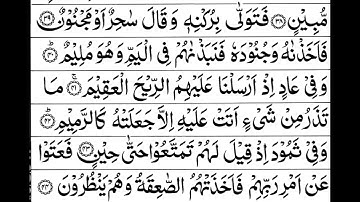 مُّبِيْنٍ ﴿٣٨﴾ فَتَوَلّٰى بِرُكْنِهٖ وَقَالَ سٰحِرٌ اَوْ مَجْنُوْنٌ ﴿٣٩﴾
فَاَخَذْنٰهُ وَجُنُوْدَهٗ فَنَبَذْنٰهُمْ فِي الْيَمِّ وَهُوَ مُلِيْمٌ ﴿٤٠﴾
وَفِيْ عَادٍ اِذْ اَرْسَلْنَا عَلَيْهِمُ الرِّيْحَ الْعَقِيْمَ ﴿٤١﴾ مَا
تَذَرُ مِنْ شَيْءٍ اَتَتْ عَلَيْهِ اِلَّا جَعَلَتْهُ كَالرَّمِيْمِ ﴿٤٢﴾
وَفِيْ ثَمُوْدَ اِذْ قِيْلَ لَهُمْ تَمَتَّعُوْا حَتّٰى حِيْنٍ ﴿٤٣﴾ فَعَتَوْا
عَنْ اَمْرِ رَبِّهِمْ فَاَخَذَتْهُمُ الصّٰعِقَةُ وَهُمْ يَنْظُرُوْنَ ﴿٤٤﴾